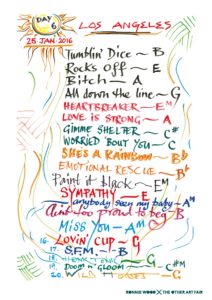 DAY 6
LOS ANGELES
25 JAN 2016
Tumblin' Dice ~ B
Rocks off ~ E
Bitch ~ A
All down the line ~ G
HEARTBREAKER ~ EM
LOVE is STRONG ~ A
GIMME SHELTER ~ C#
WORRIED 'BOUT YOU ~ C
SHE'S A RAINBOW ~ Bb
EMOTIONAL RESCUE ~ Bb
Paint it black ~ EM
SYMPATHY ~ E
anybody seen my baby ~ AM
Ain't too proud to beg ~ B
MISS YOU ~ AM
16. LOVIN' CUP ~ G
17. S.F.M. ~ B
18. HONKY TONK ~ G
19. DOOM n' GLOOM ~ C#M
20. WILD HORSES ~ G
RONNIE WOOD X THE OTHER ART FAIR